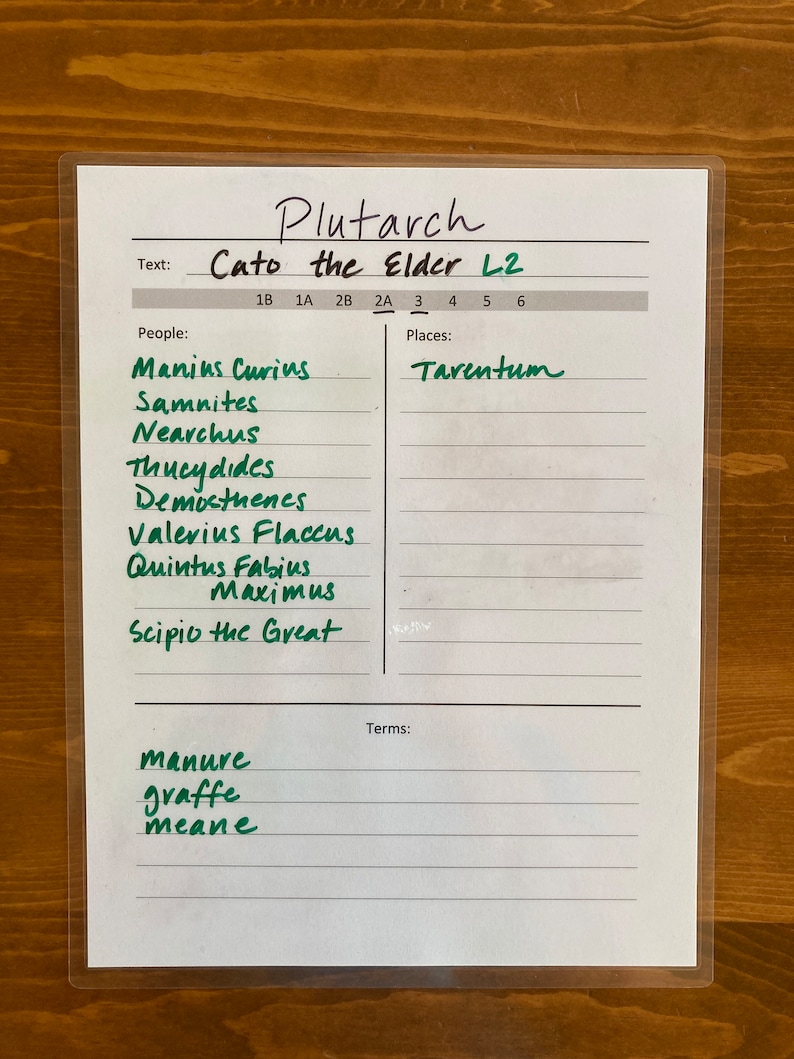 Plutarch
Text: Cato the Elder L2
1B 1A 2B 2A 3 4 5 6
People:
Manius Curius
Samnites
Nearchus
Thucydides
Demosthenes
Valerius Flaccus
Quintus Fabius
Maximus
Scipio the Great
Places:
Tarentum
Terms:
manure
graffe
meane